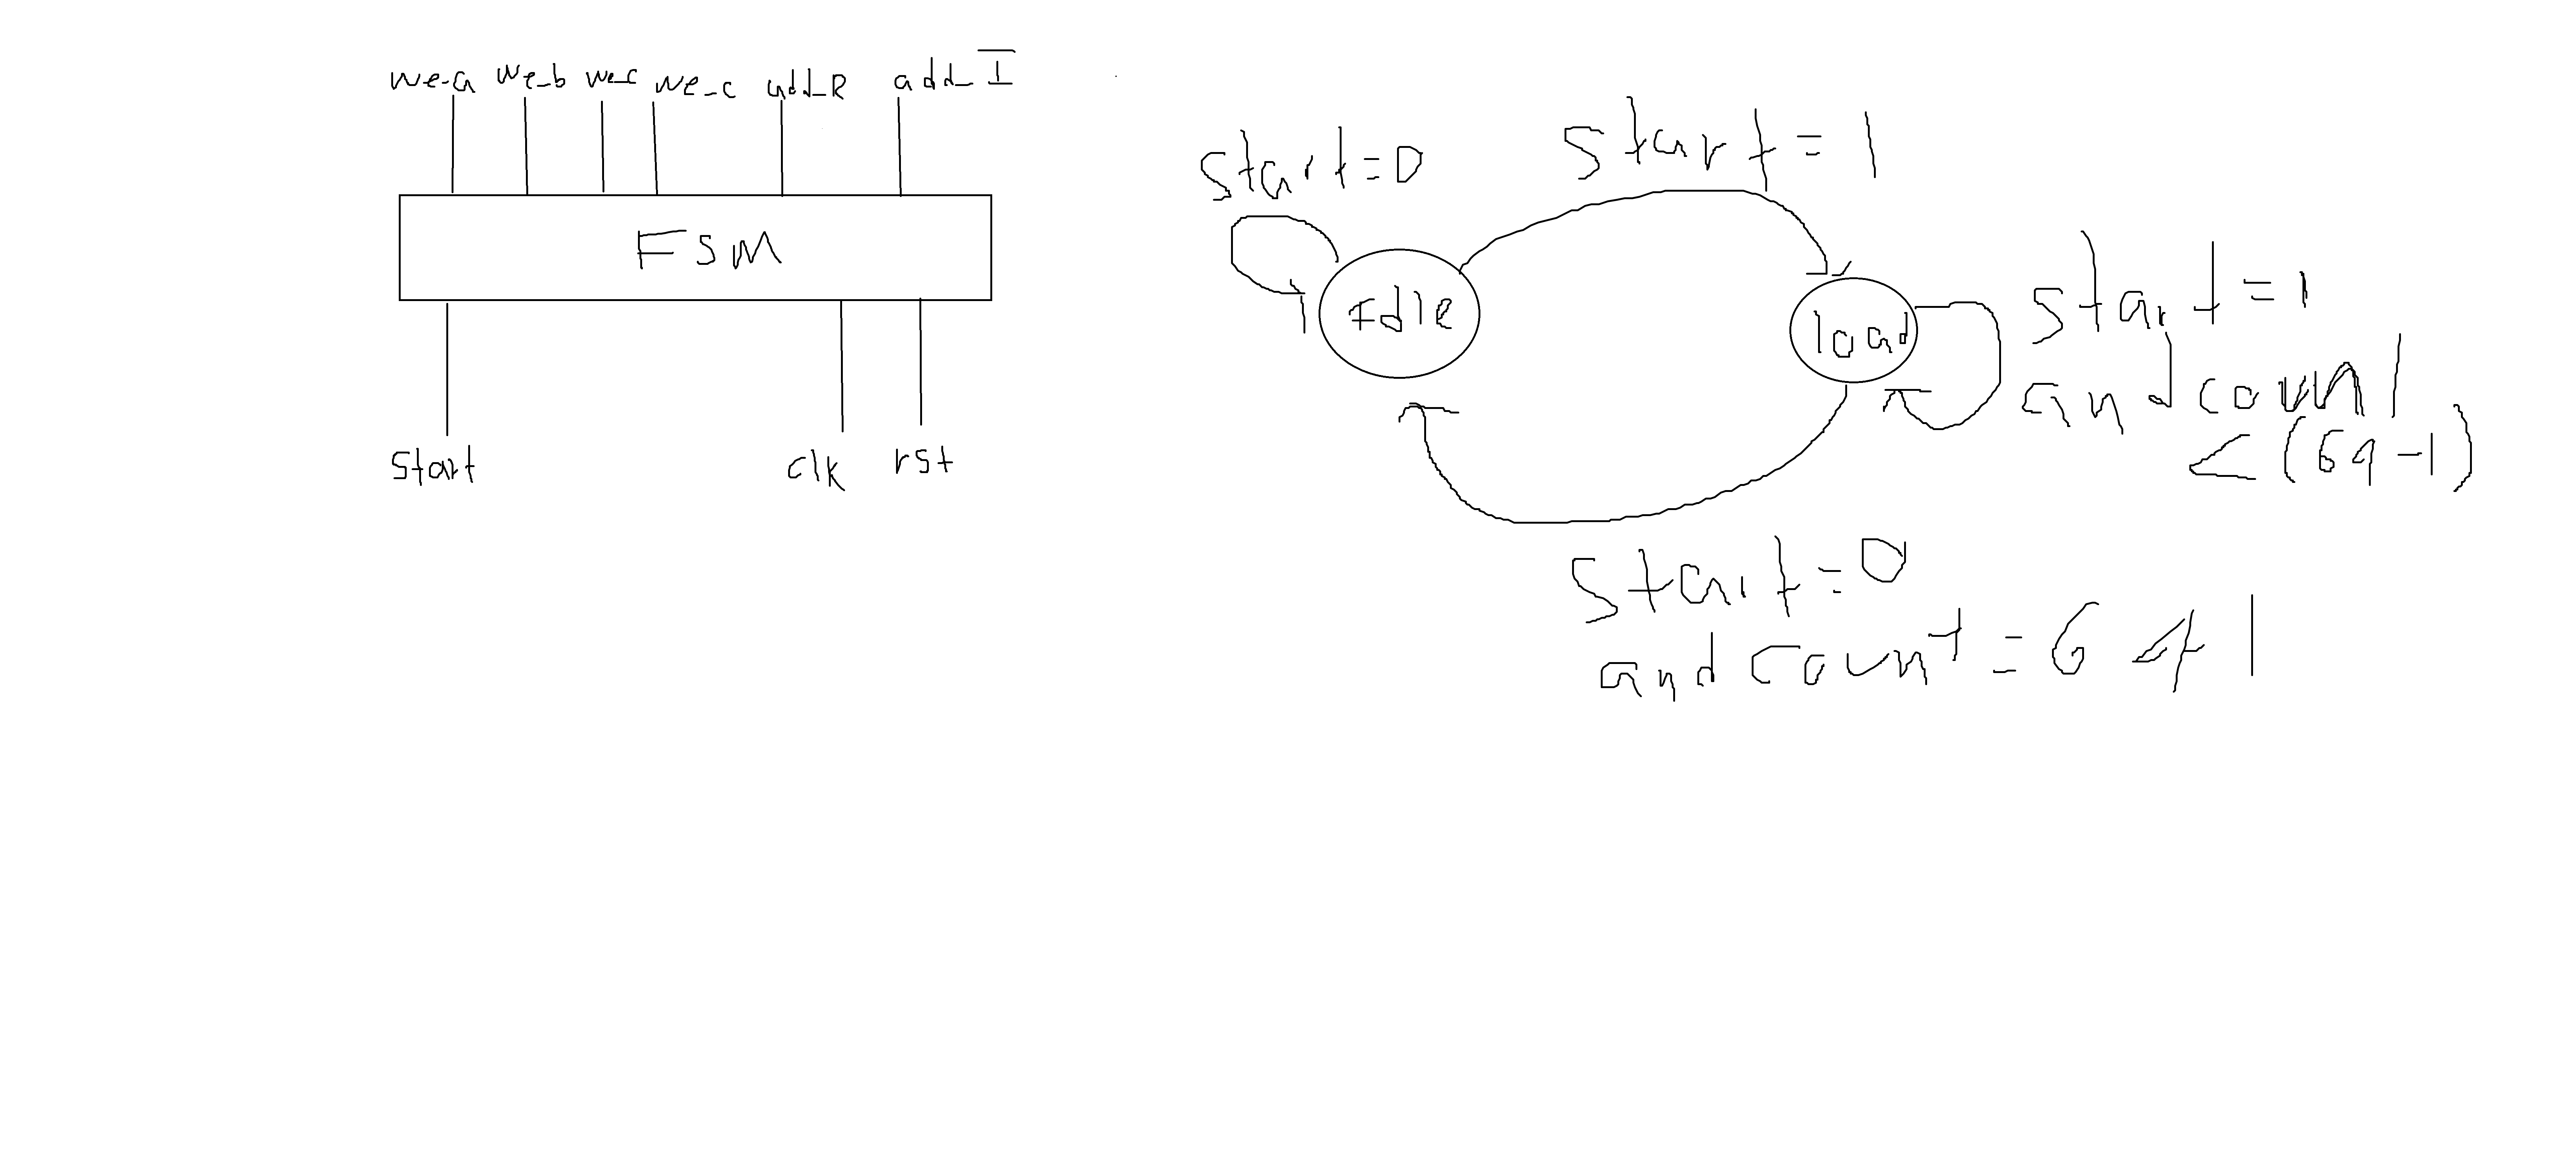 we_a we_b we_c we_c add_R add_I
FSM
start clk rst
start=0
start=1
Idle
load
start=1
and count
<(64-1)
start=0
and count=64 1